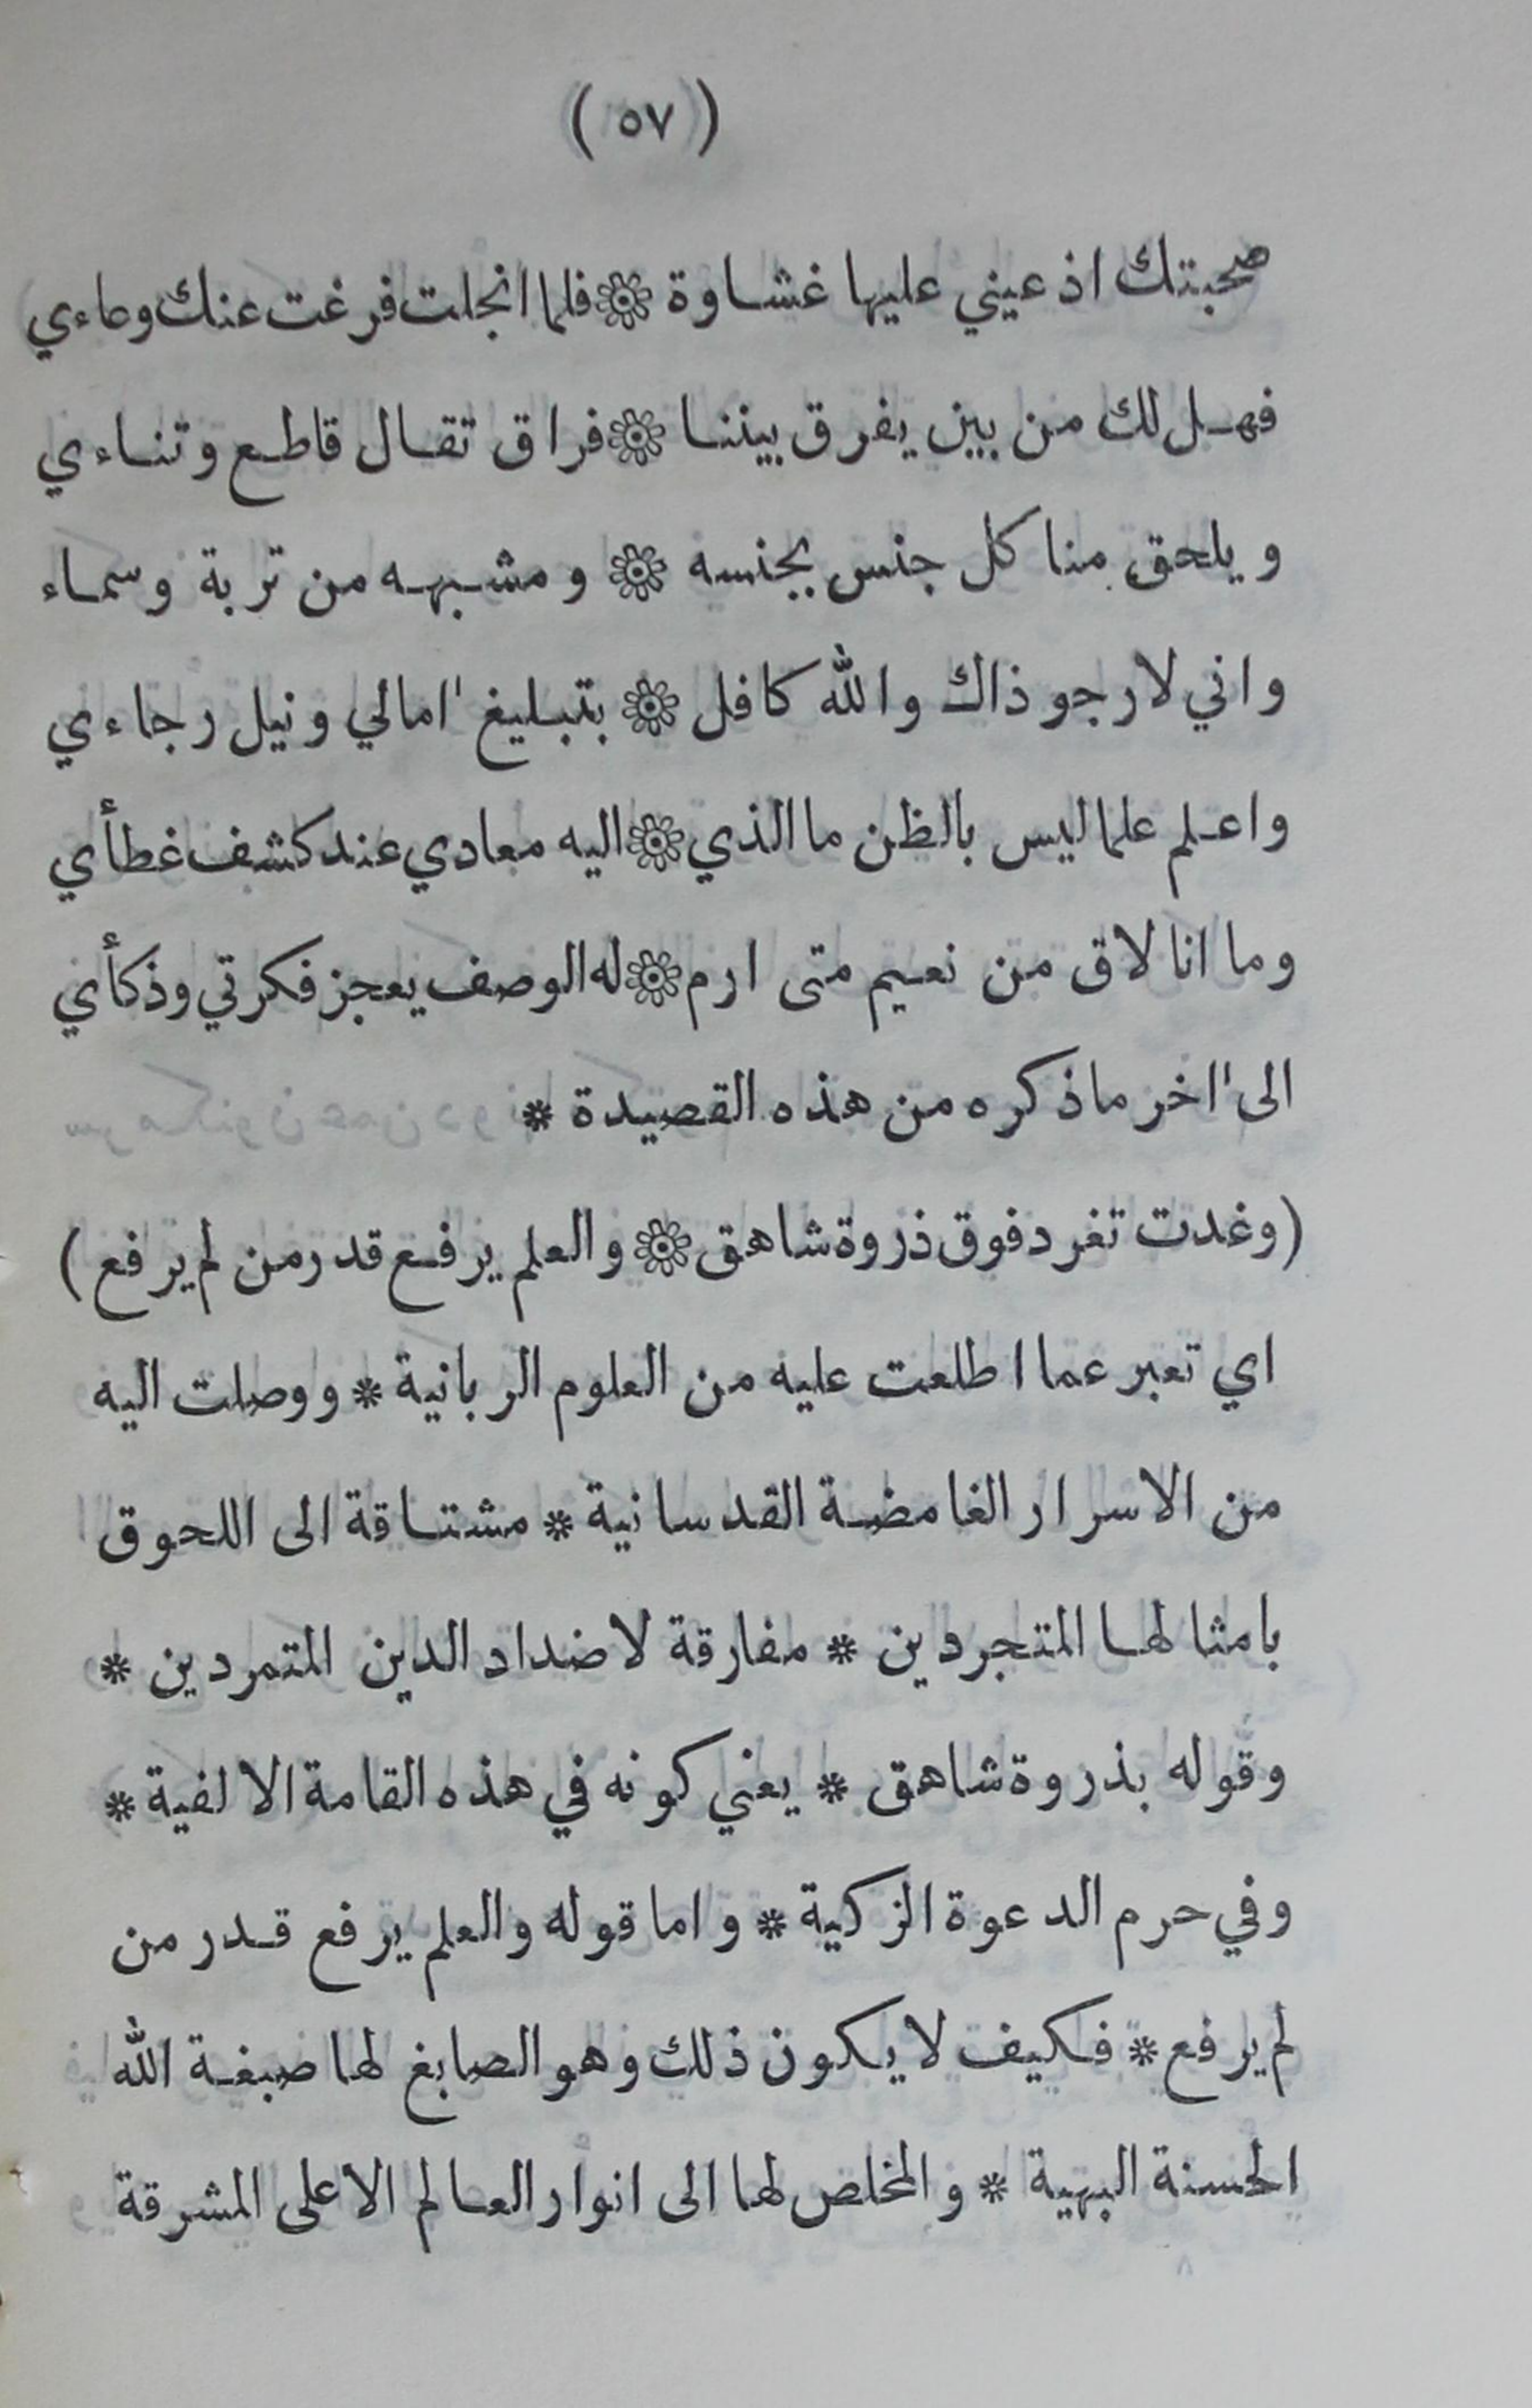 ( ٥٧ )
صحبتك اذ عيني عليها غشاوة ۞ فلما انجلت فرغت عنك وعاءي
فهل لك من بين يفرق بيننا ۞ فراق تقال قاطع وتناءي
ويلحق منا كل جنس بجنسه ۞ ومشبهه من تربة وسماء
واني لارجو ذاك والله كافل ۞ بتبليغ اامالي ونيل رجاءي
واعلم علما ليس بالظن ما الذي ۞ اليه معادي عند كشف غطأي
وما انا لاق من نعيم متى ارم ۞ له الوصف يعجز فكرتي وذكأي
الى ااخر ما ذكره من هذه القصيدة *
(وغدت تغرد فوق ذروة شاهق ۞ والعلم يرفع قدر من لم يرفع)
اي تعبر عما اطلعت عليه من العلوم الربانية * ووصلت اليه
من الاسرار الغامضة القدسانية * مشتاقة الى اللحوق
بامثالها المتجردين * مفارقة لاضداد الدين المتمردين *
وقوله بذروة شاهق * يعني كونه في هذه القامة الالفية *
وفي حرم الدعوة الزكية * واما قوله والعلم يرفع قدر من
لم يرفع * فكيف لا يكون ذلك وهو الصابغ لها صبغة الله
الحسنة البهية * والمخلص لها الى انوار العالم الاعلى المشرقة